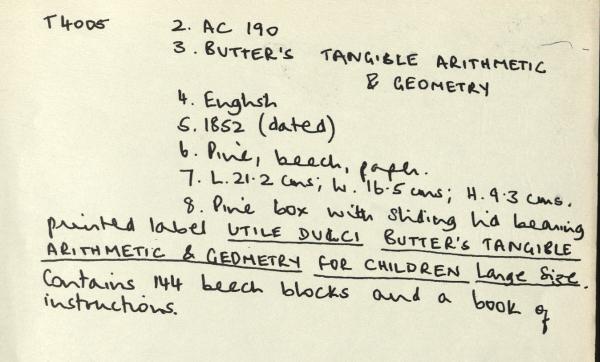 T4005 2. AC 190
3. BUTTER'S TANGIBLE ARITHMETIC
& GEOMETRY
4. English
5. 1852 (dated)
6. Pine, beech, paper.
7. L. 21.2 cms; W. 16.5 cms; H. 9.3 cms.
8. Pine box with sliding lid bearing
printed label UTILE DULCI BUTTER'S TANGIBLE
ARITHMETIC & GEOMETRY FOR CHILDREN Large Size.
Contains 144 beech blocks and a book of
instructions.